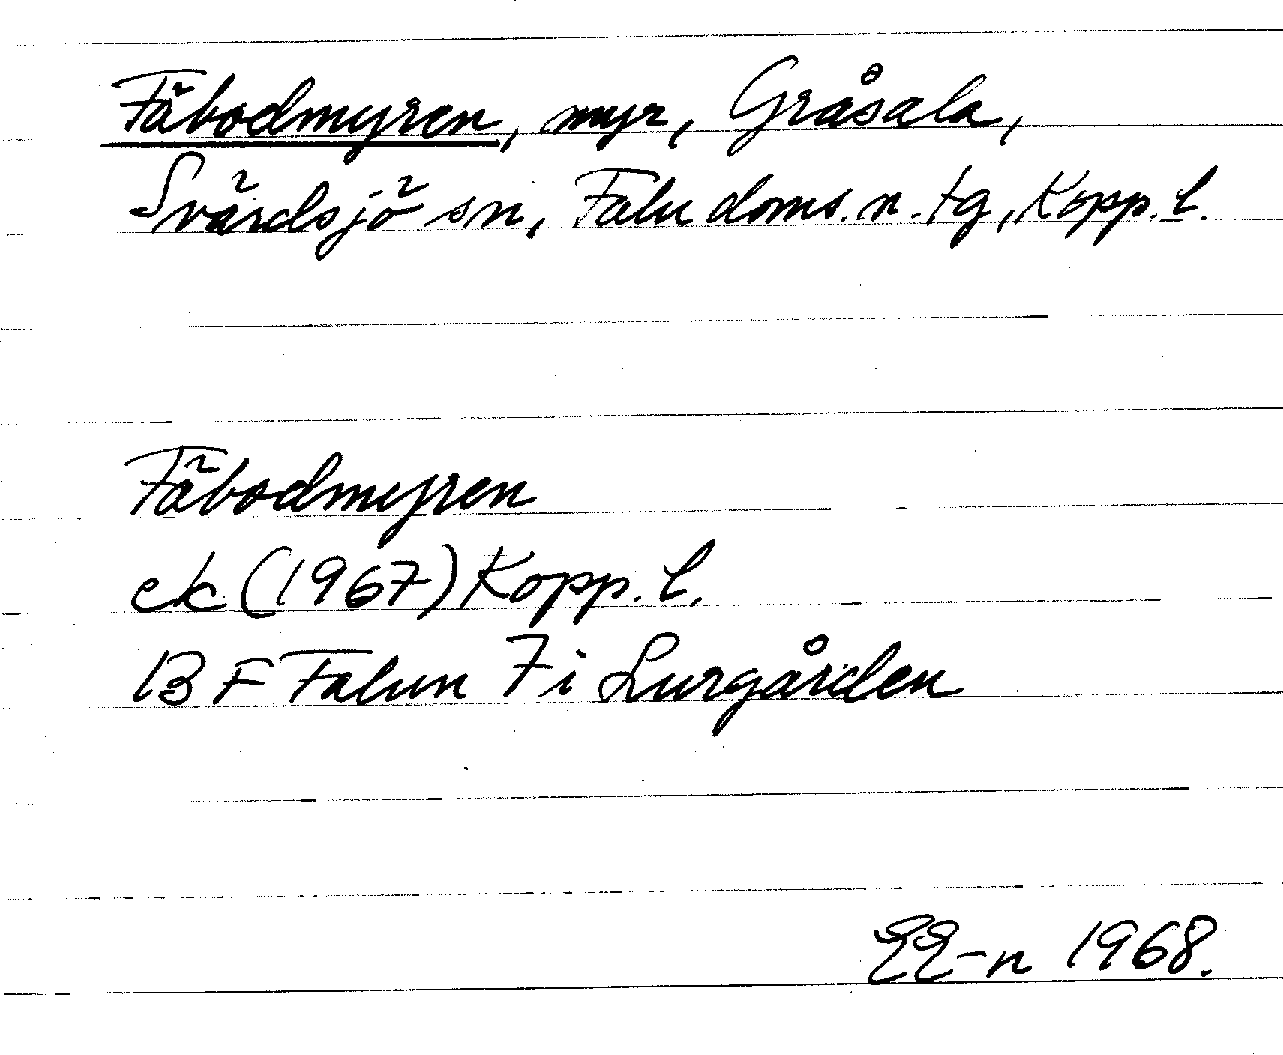 Fäbodmyren, myr, Gråsala,
Svärdsjö sn, Falu doms. n. tg, Kopp. l.
Fäbodmyren
ek (1967) Kopp. l.
13 F Falun 7 i Lurgården
EE-n 1968.